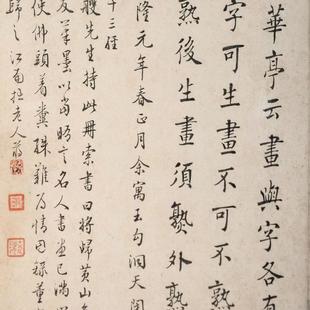 華亭云畫與字各有
字可生畫不可不熟
熟後生畫須熟外熟
隆元年春正月余寓玉勾洞天閣
十三經
先生持此冊索書曰將歸黃山
友筆墨以當晤言名人書畫已滿
使佛頭着糞殊難為情因錄董
歸之江南拙老人蔣